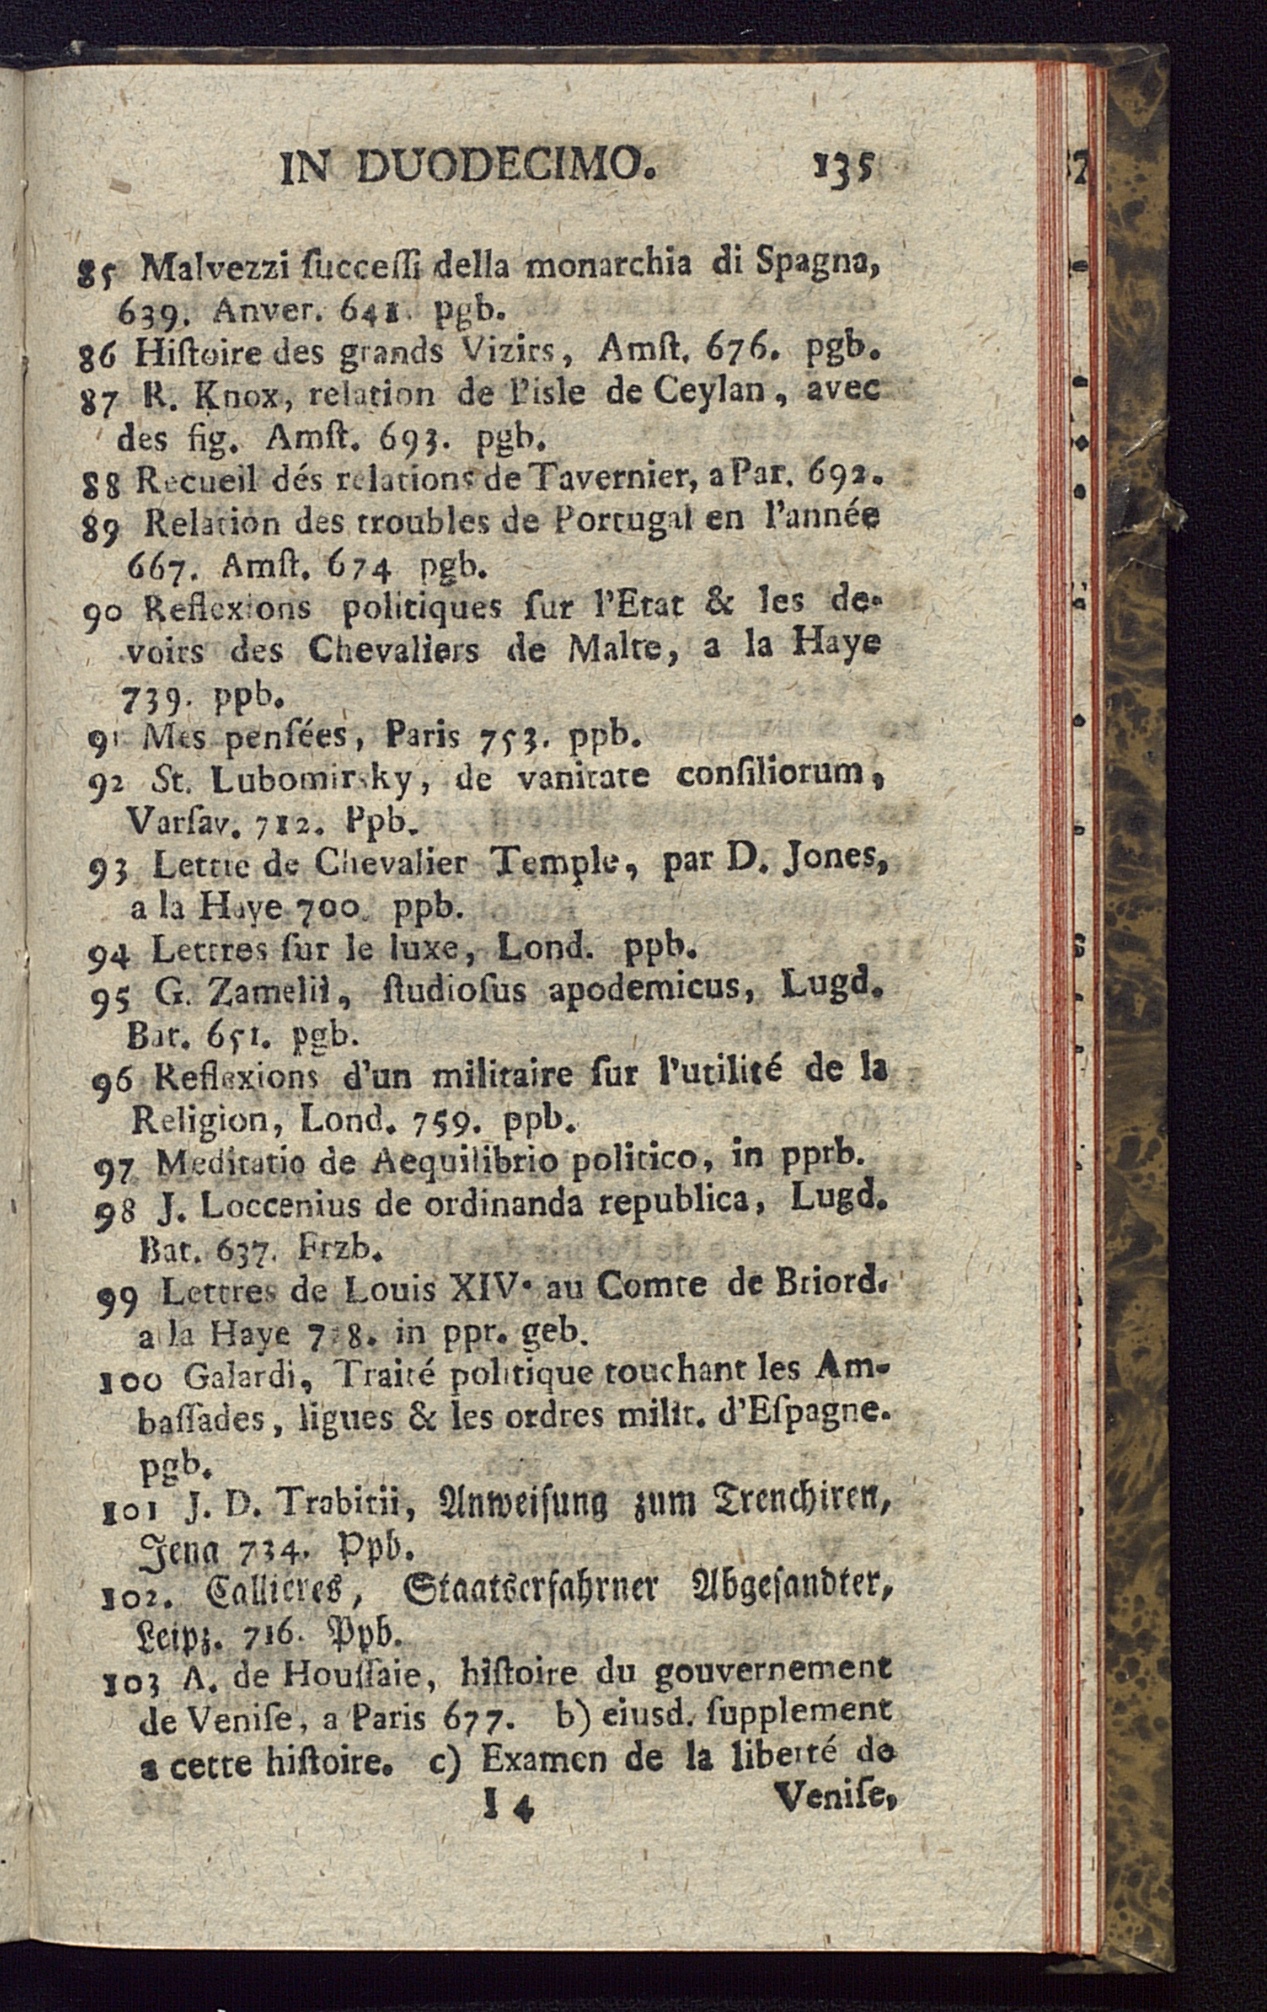 IN DUODECIMO. 135
85 Malvezzi ſucceſſi della monarchia di Spagna,
639. Anver. 641. pgb.
86 Hiſtoire des grands Vizirs, Amſt. 676. pgb.
87 R. Knox, relation de l'isle de Ceylan, avec
des fig. Amſt. 693. pgb.
88 Recueil dés relations de Tavernier, a Par. 692.
89 Relation des troubles de Portugal en l'année
667. Amſt. 674 pgb.
90 Reflexions politiques ſur l'Etat & les de-
voirs des Chevaliers de Malte, a la Haye
739. ppb.
91 Mes penſées, Paris 753. ppb.
92 St. Lubomirsky, de vanitate conſiliorum,
Varſav. 712. Ppb.
93 Lettre de Chevalier Temple, par D. Jones,
a la Haye 700. ppb.
94 Lettres ſur le luxe, Lond. ppb.
95 G. Zamelii, ſtudioſus apodemicus, Lugd.
Bat. 651. pgb.
96 Reflexions d'un militaire ſur l'utilité de la
Religion, Lond. 759. ppb.
97 Meditatio de Aequilibrio politico, in pprb.
98 J. Loccenius de ordinanda republica, Lugd.
Bat. 637. Frzb.
99 Lettres de Louis XIV. au Comte de Briord.
a la Haye in ppr. geb.
100 Galardi, Traité politique touchant les Am-
baſſades, ligues & les ordres milit. d'Eſpagne.
pgb.
101 J. D. Trabitii, Anweiſung zum Trenchiren,
Jena 734. Ppb.
102. Callieres, Staatserfahrner Abgeſandter,
Leipz. 716. Ppb.
103 A. de Houſſaie, hiſtoire du gouvernement
de Veniſe, a Paris 677. b) eiusd. ſupplement
a cette hiſtoire. c) Examen de la liberté de
I 4 Veniſe,